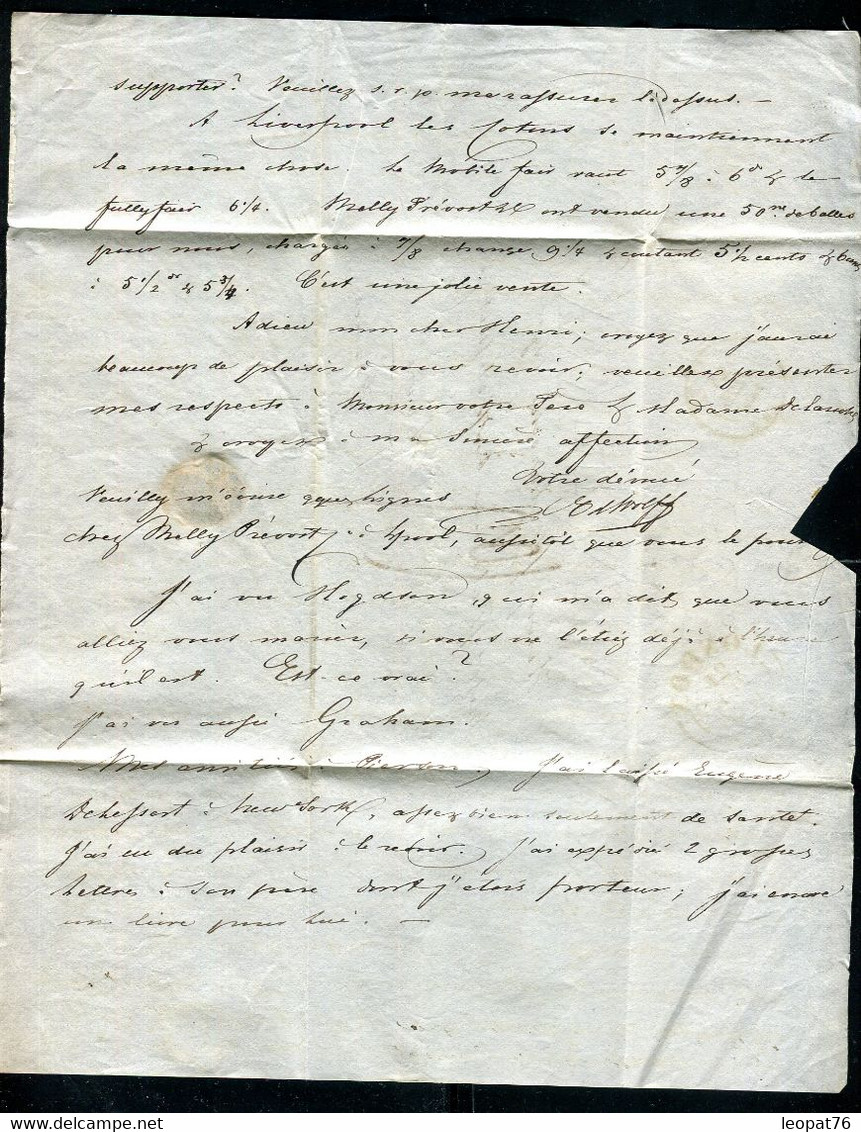 supporter? Veuillez s. v. p. me rassurer là dessus. —
A Liverpool les Cotons se maintiennent
la même chose. Le Mobile fair vaut 5 7/8 à 6 d & le
fully fair 6 1/4. Melly Prévost & C ont vendu une 50ne de balles
pour nous, chargés à 7/8 change 9 1/4 & coutant 5 1/2 cents &
à 5 1/2 d & 5 3/4. C'est une jolie vente.
Adieu mon cher Henri, croyez que j'aurai
beaucoup de plaisir à vous revoir; veuillez présenter
mes respects à Monsieur votre Père & Madame
& croyez à ma sincère affection
Votre dévoué
E de Wolff
Veuillez m'écrire qques lignes
chez Melly Prévost & à Lpool, aussitôt que vous le
J'ai vu Hogdson, qui m'a dit que vous
alliez vous marier, si vous ne l'étiez déjà à l'heure
qu'il est. Est-ce vrai?
J'ai vu aussi Graham.
Mes amitiés à Pierson, J'ai laissé Eugène
Delessert à New York, assez bien seulement de santé.
J'ai eu du plaisir à le revoir. J'ai expédié 2 grosses
lettres à son père dont j'étois porteur; j'ai encore
un livre pour lui. —
leopat76